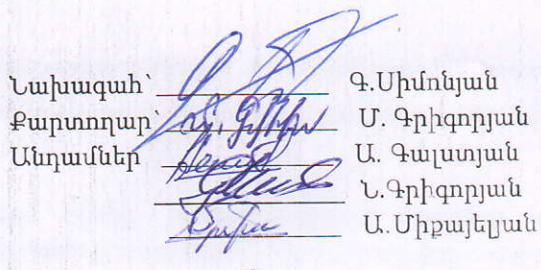 Նախագահ՝ Գ.Սիմոնյան
Քարտուղար՝ Մ. Գրիգորյան
Անդամներ Ա. Գալստյան
Ն.Գրիգորյան
Ա.Միքայելյան